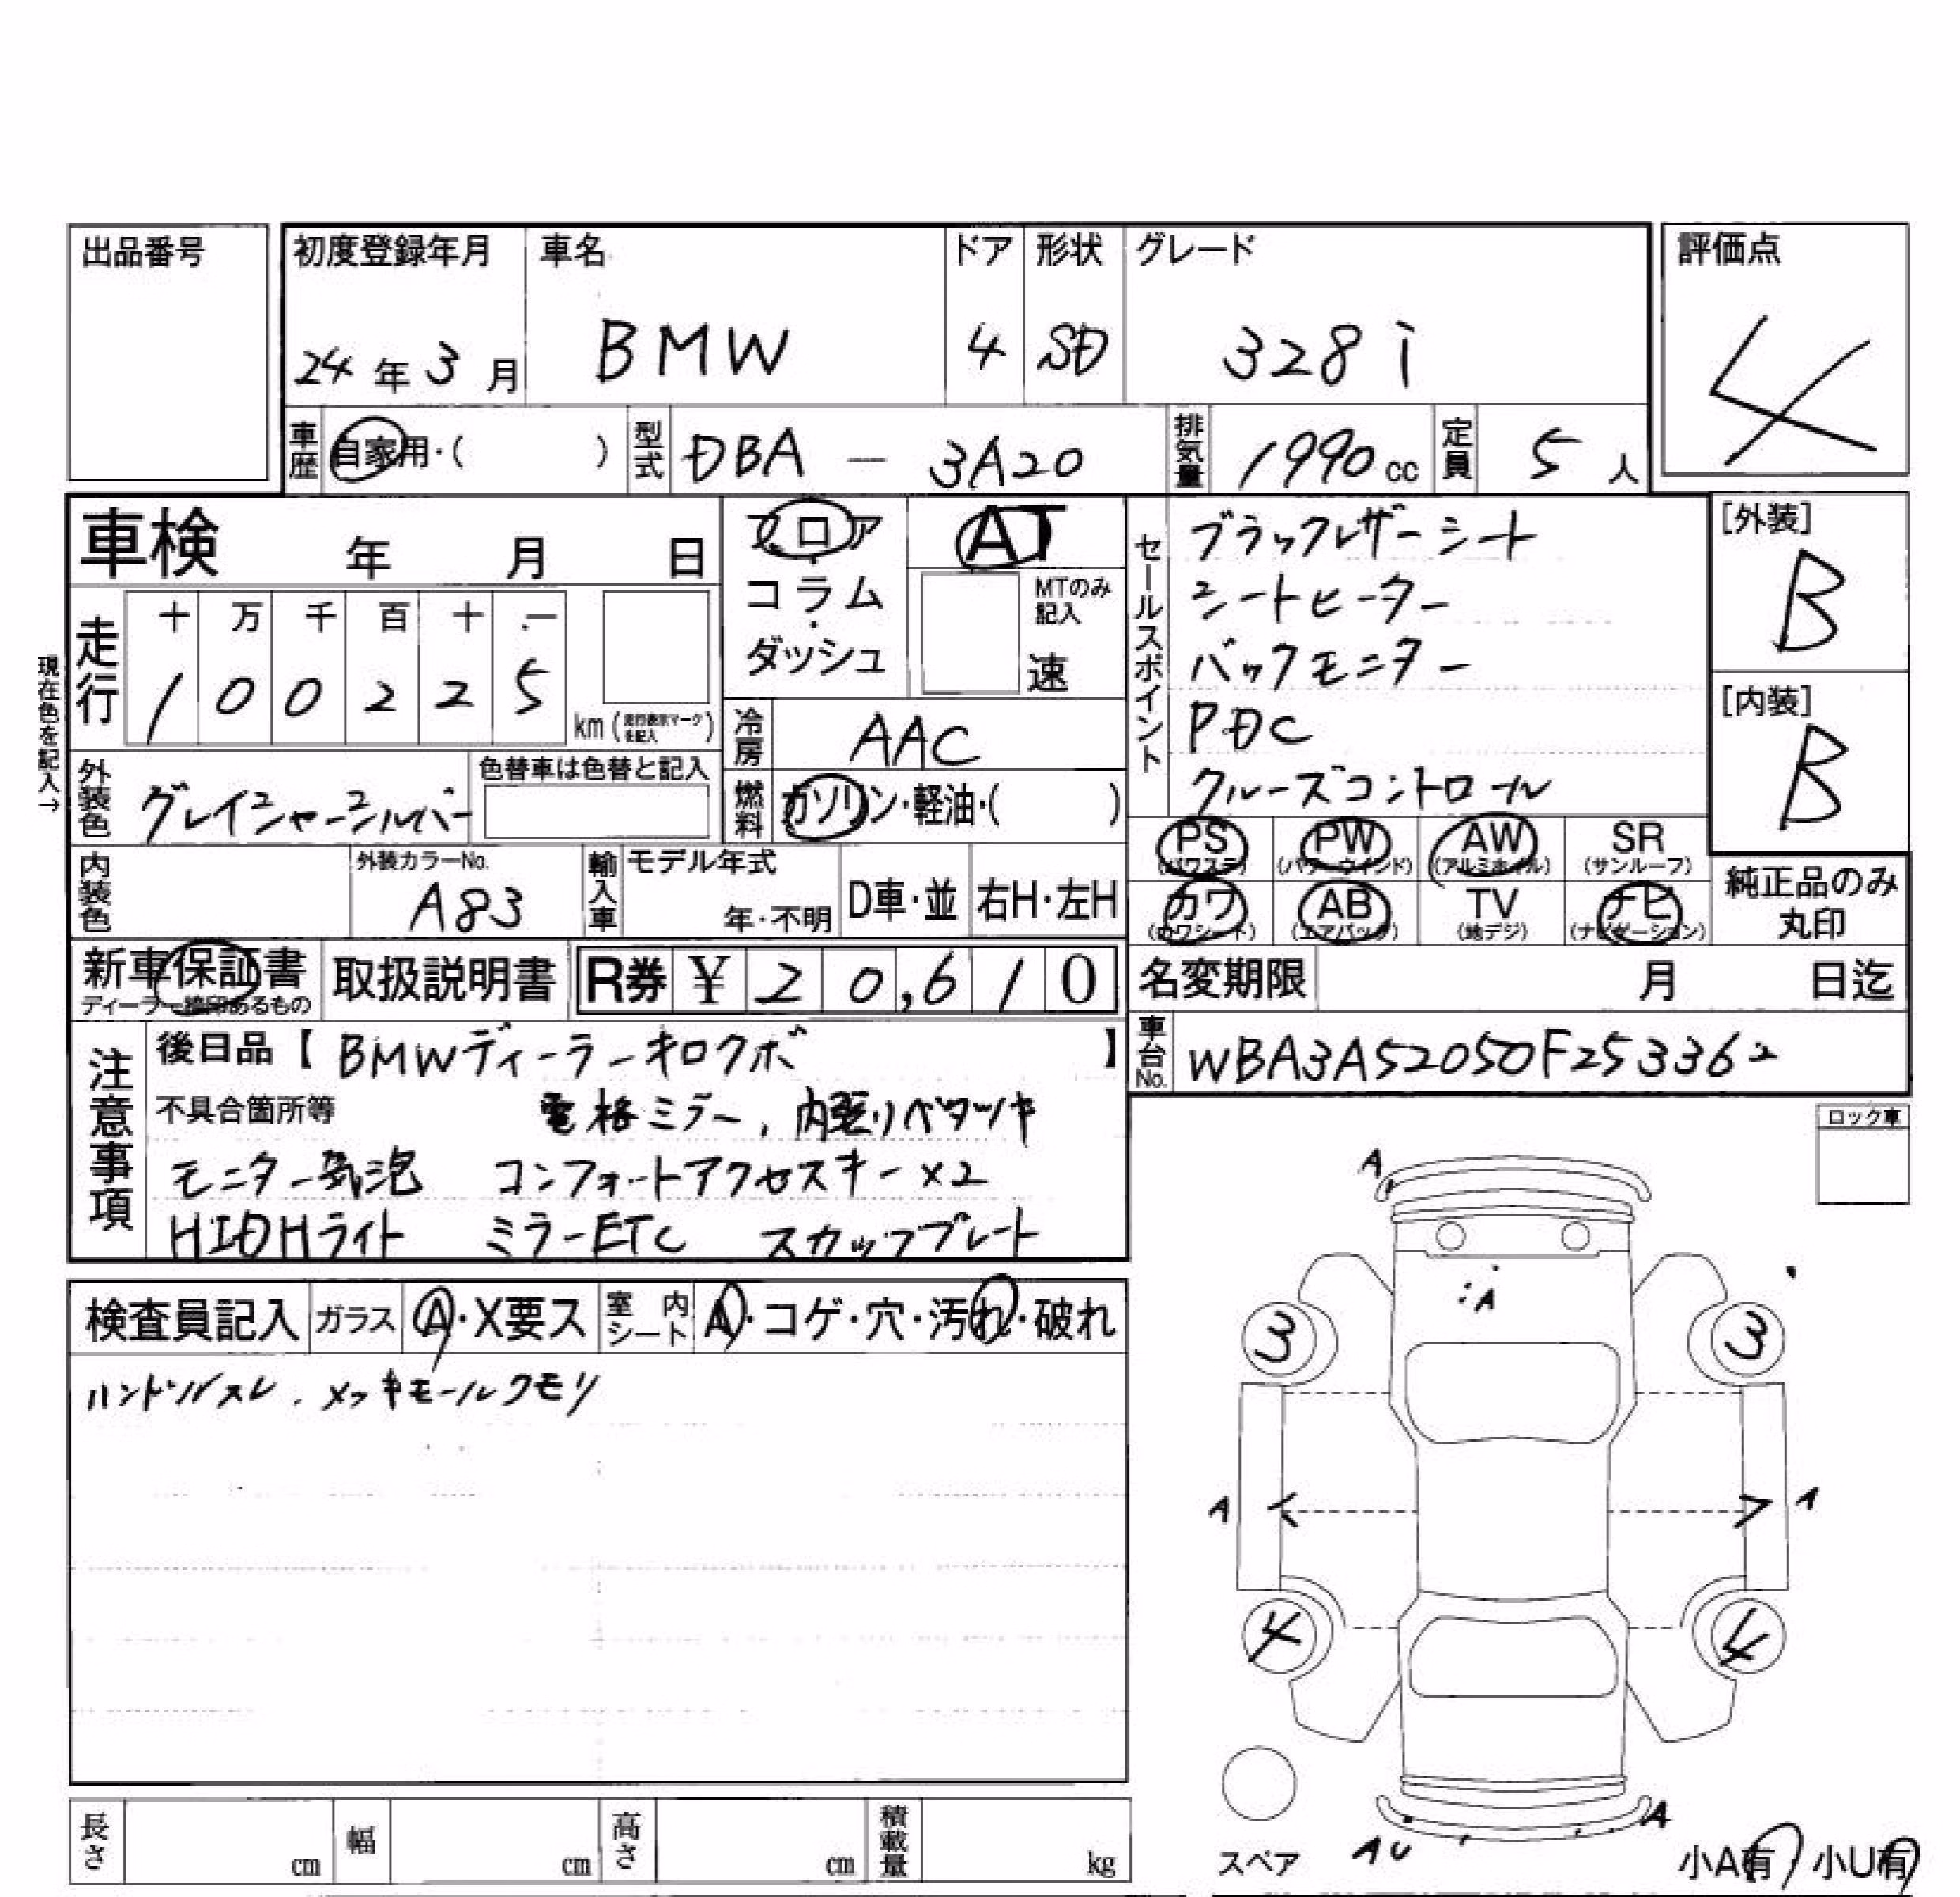 出品番号
初度登録年月 車名 ドア 形状 グレード 評価点
24年3月 BMW 4 SD 328i 4
車歴 自家用・( ) 型式 DBA - 3A20 排気量 1990cc 定員 5人
車検 年 月 日
フロア・コラム・ダッシュ
AT
MTのみ記入
速
セールスポイント
ブラックレザーシート
シートヒーター
バックモニター
PDC
クルーズコントロール
[外装]
B
[内装]
B
現在色を記入→
走行 十 万 千 百 十 一
1 0 0 2 2 5 km (走行表示マークを記入)
冷房 AAC
外装色 グレイシャーシルバー 色替車は色替と記入
燃料 ガソリン・軽油・( )
内装色 外装カラーNo. A83 輸入車 モデル年式 年・不明 D車・並 右H・左H
PS (パワステ) PW (パワーウインド) AW (アルミホイル) SR (サンルーフ)
カワ (カワシート) AB (エアバック) TV (地デジ) ナビ (ナビゲーション)
純正品のみ丸印
新車保証書 ディーラー捺印あるもの 取扱説明書 R券 ¥ 20,610
名変期限 月 日迄
車台No. WBA3A52050F253362
注意事項
後日品【BMWディーラーキロクボ】
不具合箇所等 電格ミラー、内張りベタツキ
モニター気泡 コンフォートアクセスキー×2
HIDHライト ミラーETC スカッフプレート
ロック車
検査員記入 ガラス A・X要ス 室内シート A・コゲ・穴・汚れ・破れ
ハンドルスレ、メッキモールクモリ
A
A
3 3
A < > A
4 4
A
AU
スペア
小A有 小U有
長さ cm 幅 cm 高さ cm 積載量 kg